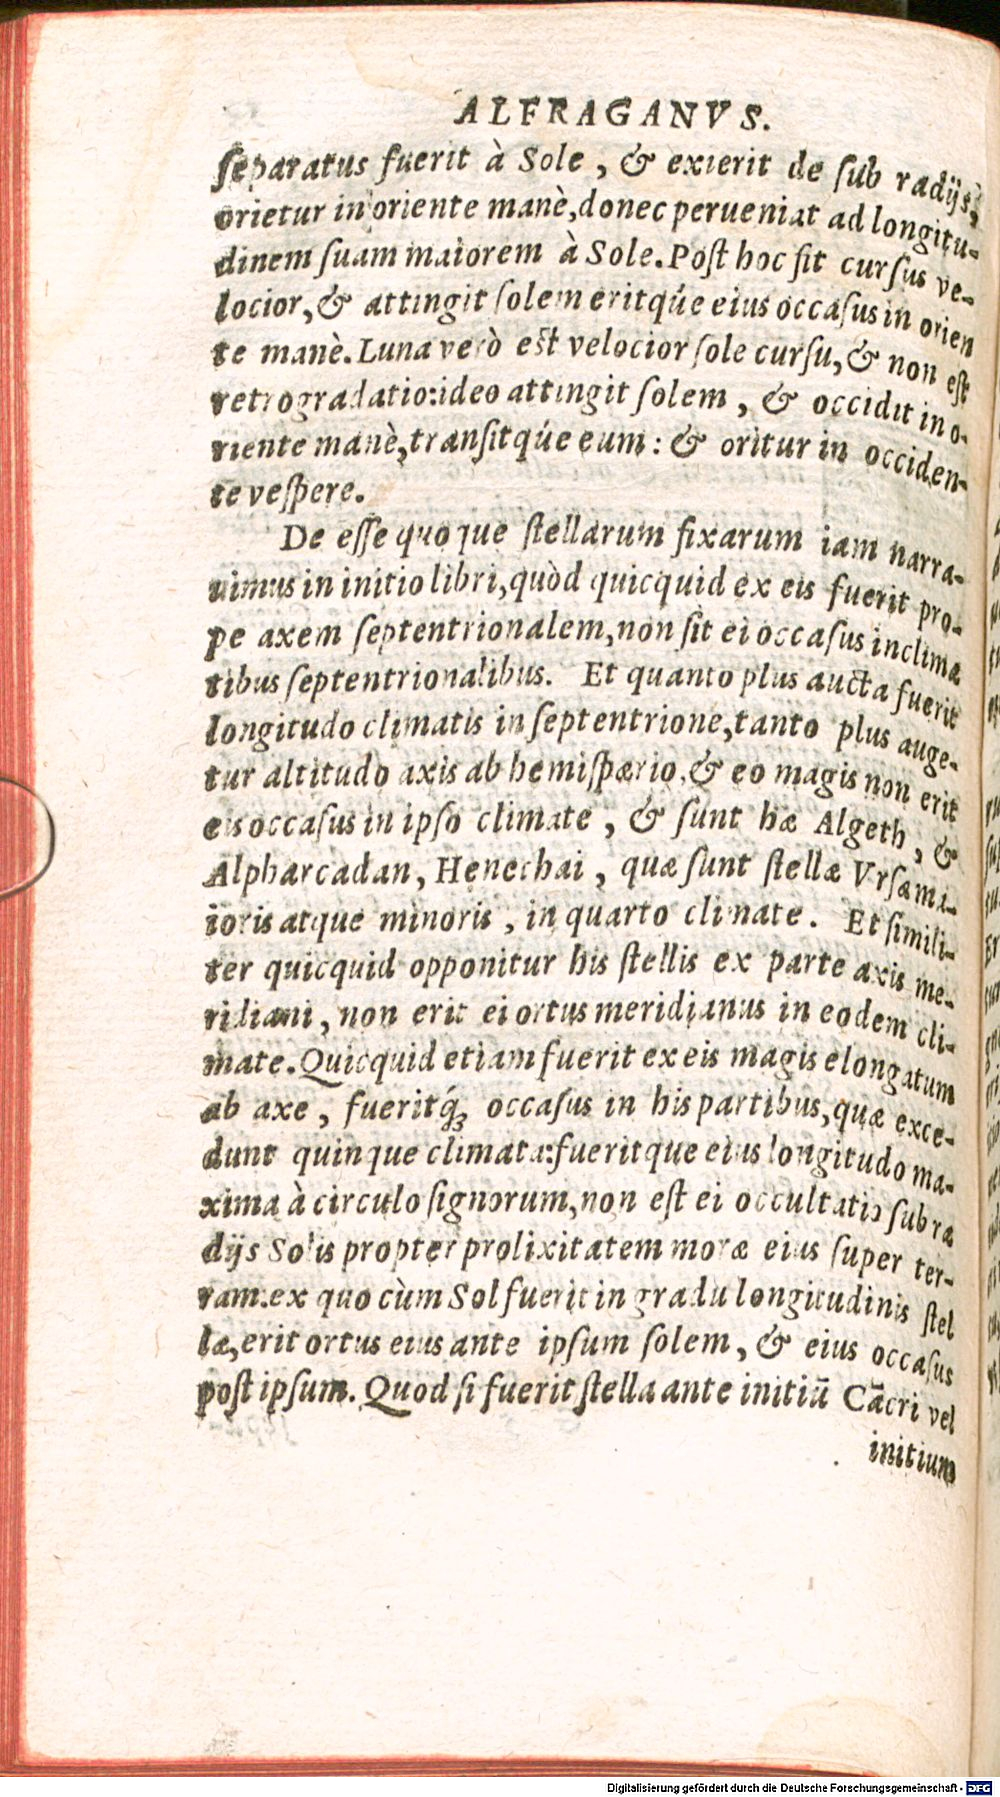 ALFRAGANVS.
ſeparatus fuerit à Sole, & exierit de ſub radijs,
orietur in oriente manè, donec perueniat ad longitu-
dinem ſuam maiorem à Sole. Poſt hoc fit curſus ve-
locior, & attingit ſolem eritqúe eius occaſus in orien
te manè. Luna verò eſt velocior ſole curſu, & non eſt
retrogradatio: ideo attingit ſolem, & occidit in o-
riente manè, tranſitqúe eum: & oritur in occiden-
te veſpere.
De eſſe quoque ſtellarum fixarum iam narra-
uimus in initio libri, quòd quicquid ex eis fuerit pro-
pe axem ſeptentrionalem, non fit ei occaſus inclima
tibus ſeptentrionalibus. Et quanto plus aucta fuerit
longitudo climatis in ſeptentrione, tanto plus auge-
tur altitudo axis ab hemiſpærio, & eo magis non erit
eis occaſus in ipſo climate, & ſunt hæ Algeth, &
Alpharcadan, Henechai, quæ ſunt ſtellæ Vrſæ ma-
ioris atque minoris, in quarto climate. Et ſimili-
ter quicquid opponitur his ſtellis ex parte axis me-
ridiani, non erit ei ortus meridianus in eodem cli-
mate. Quicquid etiam fuerit ex eis magis elongatum
ab axe, fueritq́; occaſus in his partibus, quæ exce-
dunt quinque climata: fueritque eius longitudo ma-
xima à circulo ſignorum, non eſt ei occultatio ſub ra
dijs Solis propter prolixitatem moræ eius ſuper ter-
ram: ex quo cùm Sol fuerit in gradu longitudinis ſtel
læ, erit ortus eius ante ipſum ſolem, & eius occaſus
poſt ipſum. Quod ſi fuerit ſtella ante initiū Cācri vel
initium
Digitalisierung gefördert durch die Deutsche Forschungsgemeinschaft - DFG